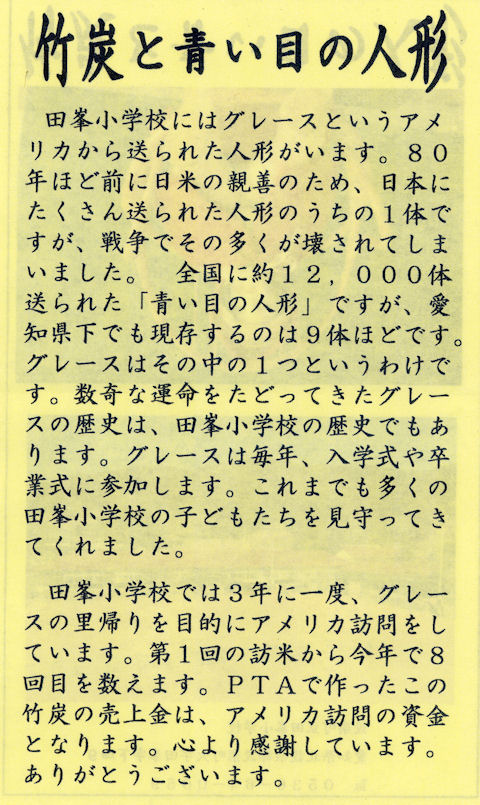 竹炭と青い目の人形
田峯小学校にはグレースというアメ
リカから送られた人形がいます。８０
年ほど前に日米の親善のため、日本に
たくさん送られた人形のうちの１体で
すが、戦争でその多くが壊されてしま
いました。　全国に約１２，０００体
送られた「青い目の人形」ですが、愛
知県下でも現存するのは９体ほどです。
グレースはその中の１つというわけで
す。数奇な運命をたどってきたグレー
スの歴史は、田峯小学校の歴史でもあ
ります。グレースは毎年、入学式や卒
業式に参加します。これまでも多くの
田峯小学校の子どもたちを見守ってき
てくれました。
田峯小学校では３年に一度、グレー
スの里帰りを目的にアメリカ訪問をし
ています。第１回の訪米から今年で８
回目を数えます。ＰＴＡで作ったこの
竹炭の売上金は、アメリカ訪問の資金
となります。心より感謝しています。
ありがとうございます。